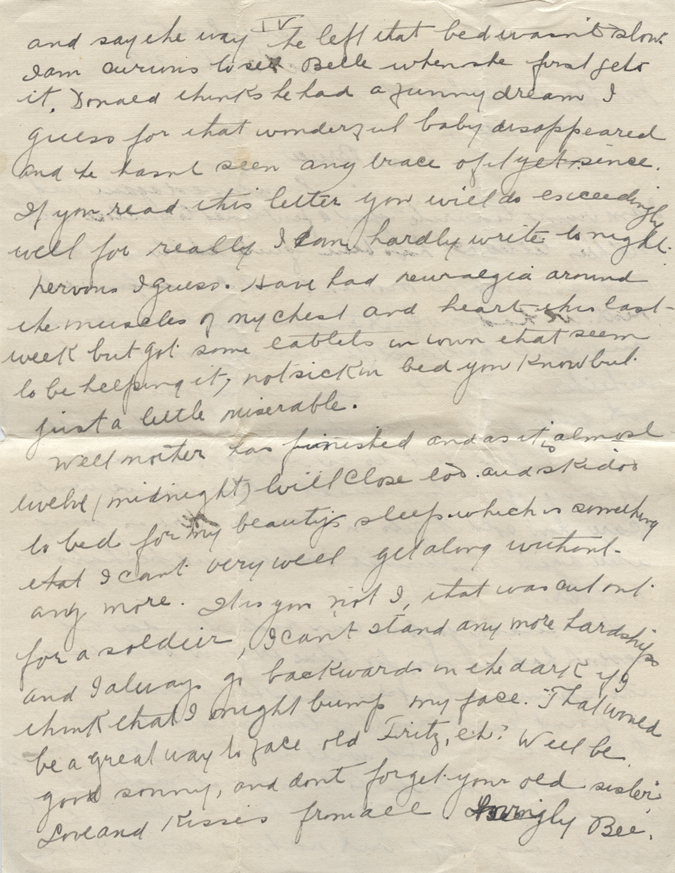 IV
and say the way he left that bed wasn't slow.
I am curious to see Belle when she first gets
it. Donald thinks he had a funny dream I
guess for that wonderful baby disappeared
and he hasnt seen any trace of it yet since.
If you read this letter you will do exceedingly
well for really I can hardly write to night.
nervous I guess. Have had neuralgia around
the muscles of my chest and heart this last
week but got some tablets in town that seem
to be helping it, not sick in bed you know but
just a little miserable.
Well mother has finished and as it is almost
twelve (midnight) I will close too and skidoo
to bed for my beauty's sleep which is something
that I cant very well get along without
any more. It is you not I, that was cut out
for a soldier, I can't stand any more hardships
and I always go backwards in the dark if I
think that I might bump my face. That would
be a great way to face old Fritz, eh? Well be
good sonny, and dont forget your old sister.
Love and Kisses from all Lovingly Bee.